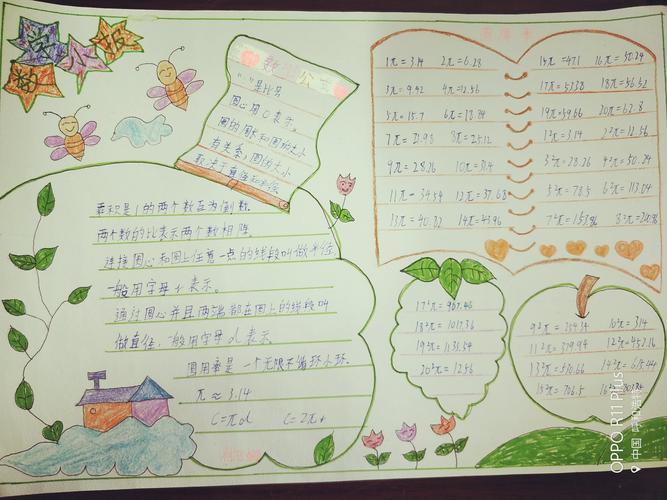 数学小报
数学公主
":"是比号
圆心用O表示。
圆的周长和圆的大小
有关系,圆的大小
取决于直径和半径
乘积是1的两个数互为倒数。
两个数的比表示两个数相除。
连接圆心和圆上任意一点的线段叫做半径
一般用字母r表示。
通过圆心并且两端都在圆上的线段叫
做直径,一般用字母d表示
圆周率是一个无限不循环小环.
π≈3.14
C=πd C=2πr
1π=3.14 2π=6.28
3π=9.42 4π=12.56
5π=15.7 6π=18.84
7π=21.98 8π=25.12
9π=28.26 10π=31.4
11π=34.54 12π=37.68
13π=40.82 14π=43.96
15π=47.1 16π=50.24
17π=53.38 18π=56.52
19π=59.66 20π=62.8
1²π=3.14 2²π=12.56
3²π=28.26 4²π=50.24
5²π=78.5 6²π=113.04
7²π=153.86 8²π=200.96
17²π=907.46
18²π=1017.36
19²π=1133.54
20²π=1256
9²π=254.34 10²π=314
11²π=379.94 12²π=452.16
13²π=530.66 14²π=615.44
15²π=706.5
OPPO R11 Plus
中国